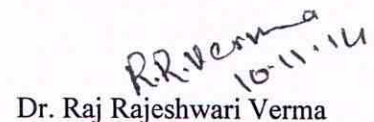 R.R.Verma
10.11.14
Dr. Raj Rajeshwari Verma